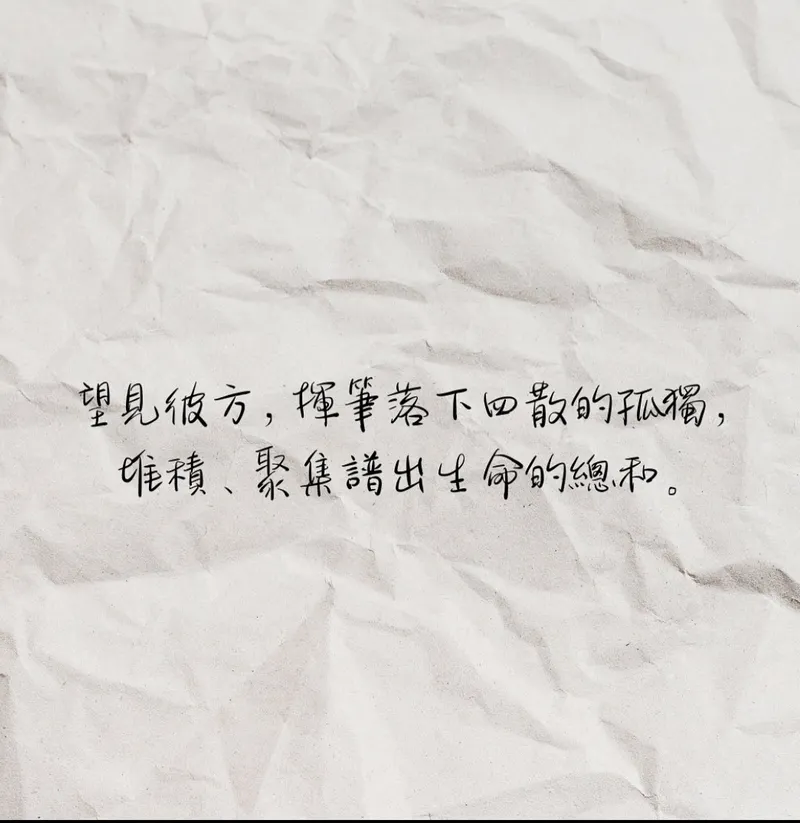 望見彼方，揮筆落下四散的孤獨，
堆積、聚集譜出生命的總和。